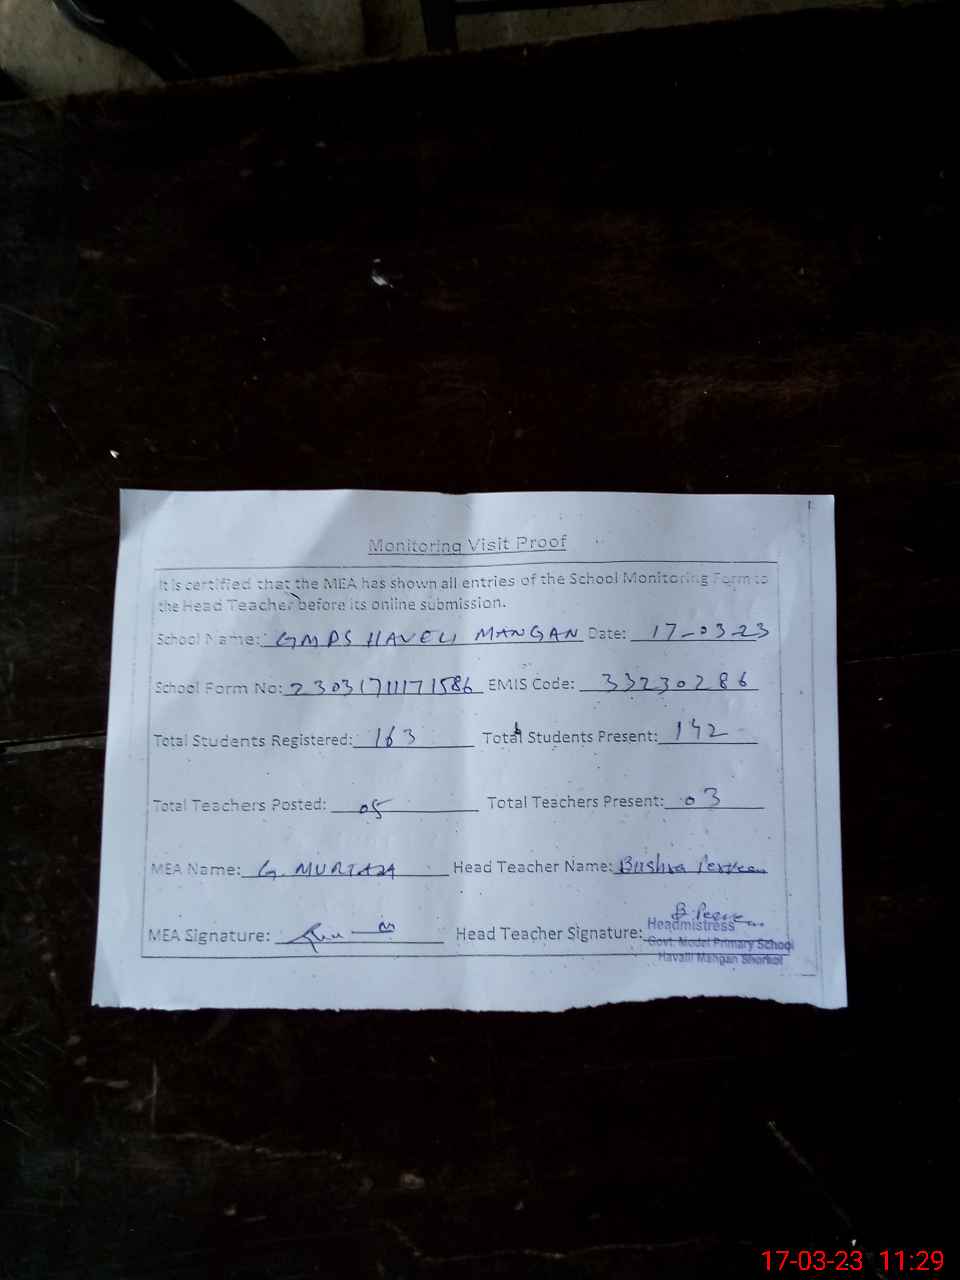 Monitoring Visit Proof
It is certified that the MEA has shown all entries of the School Monitoring Form to
the Head Teacher before its online submission.
School Name: GMPS HAVELI MANGAN Date: 17-03-23
School Form No: 230317111171586 EMIS Code: 33230286
Total Students Registered: 163 Total Students Present: 142
Total Teachers Posted: 05 Total Teachers Present: 03
MEA Name: G. MURTAZA Head Teacher Name: Bushra Perveen
MEA Signature: Head Teacher Signature:
Headmistress
Govt. Model Primary School
Havalli Mangan Shorkot
17-03-23 11:29